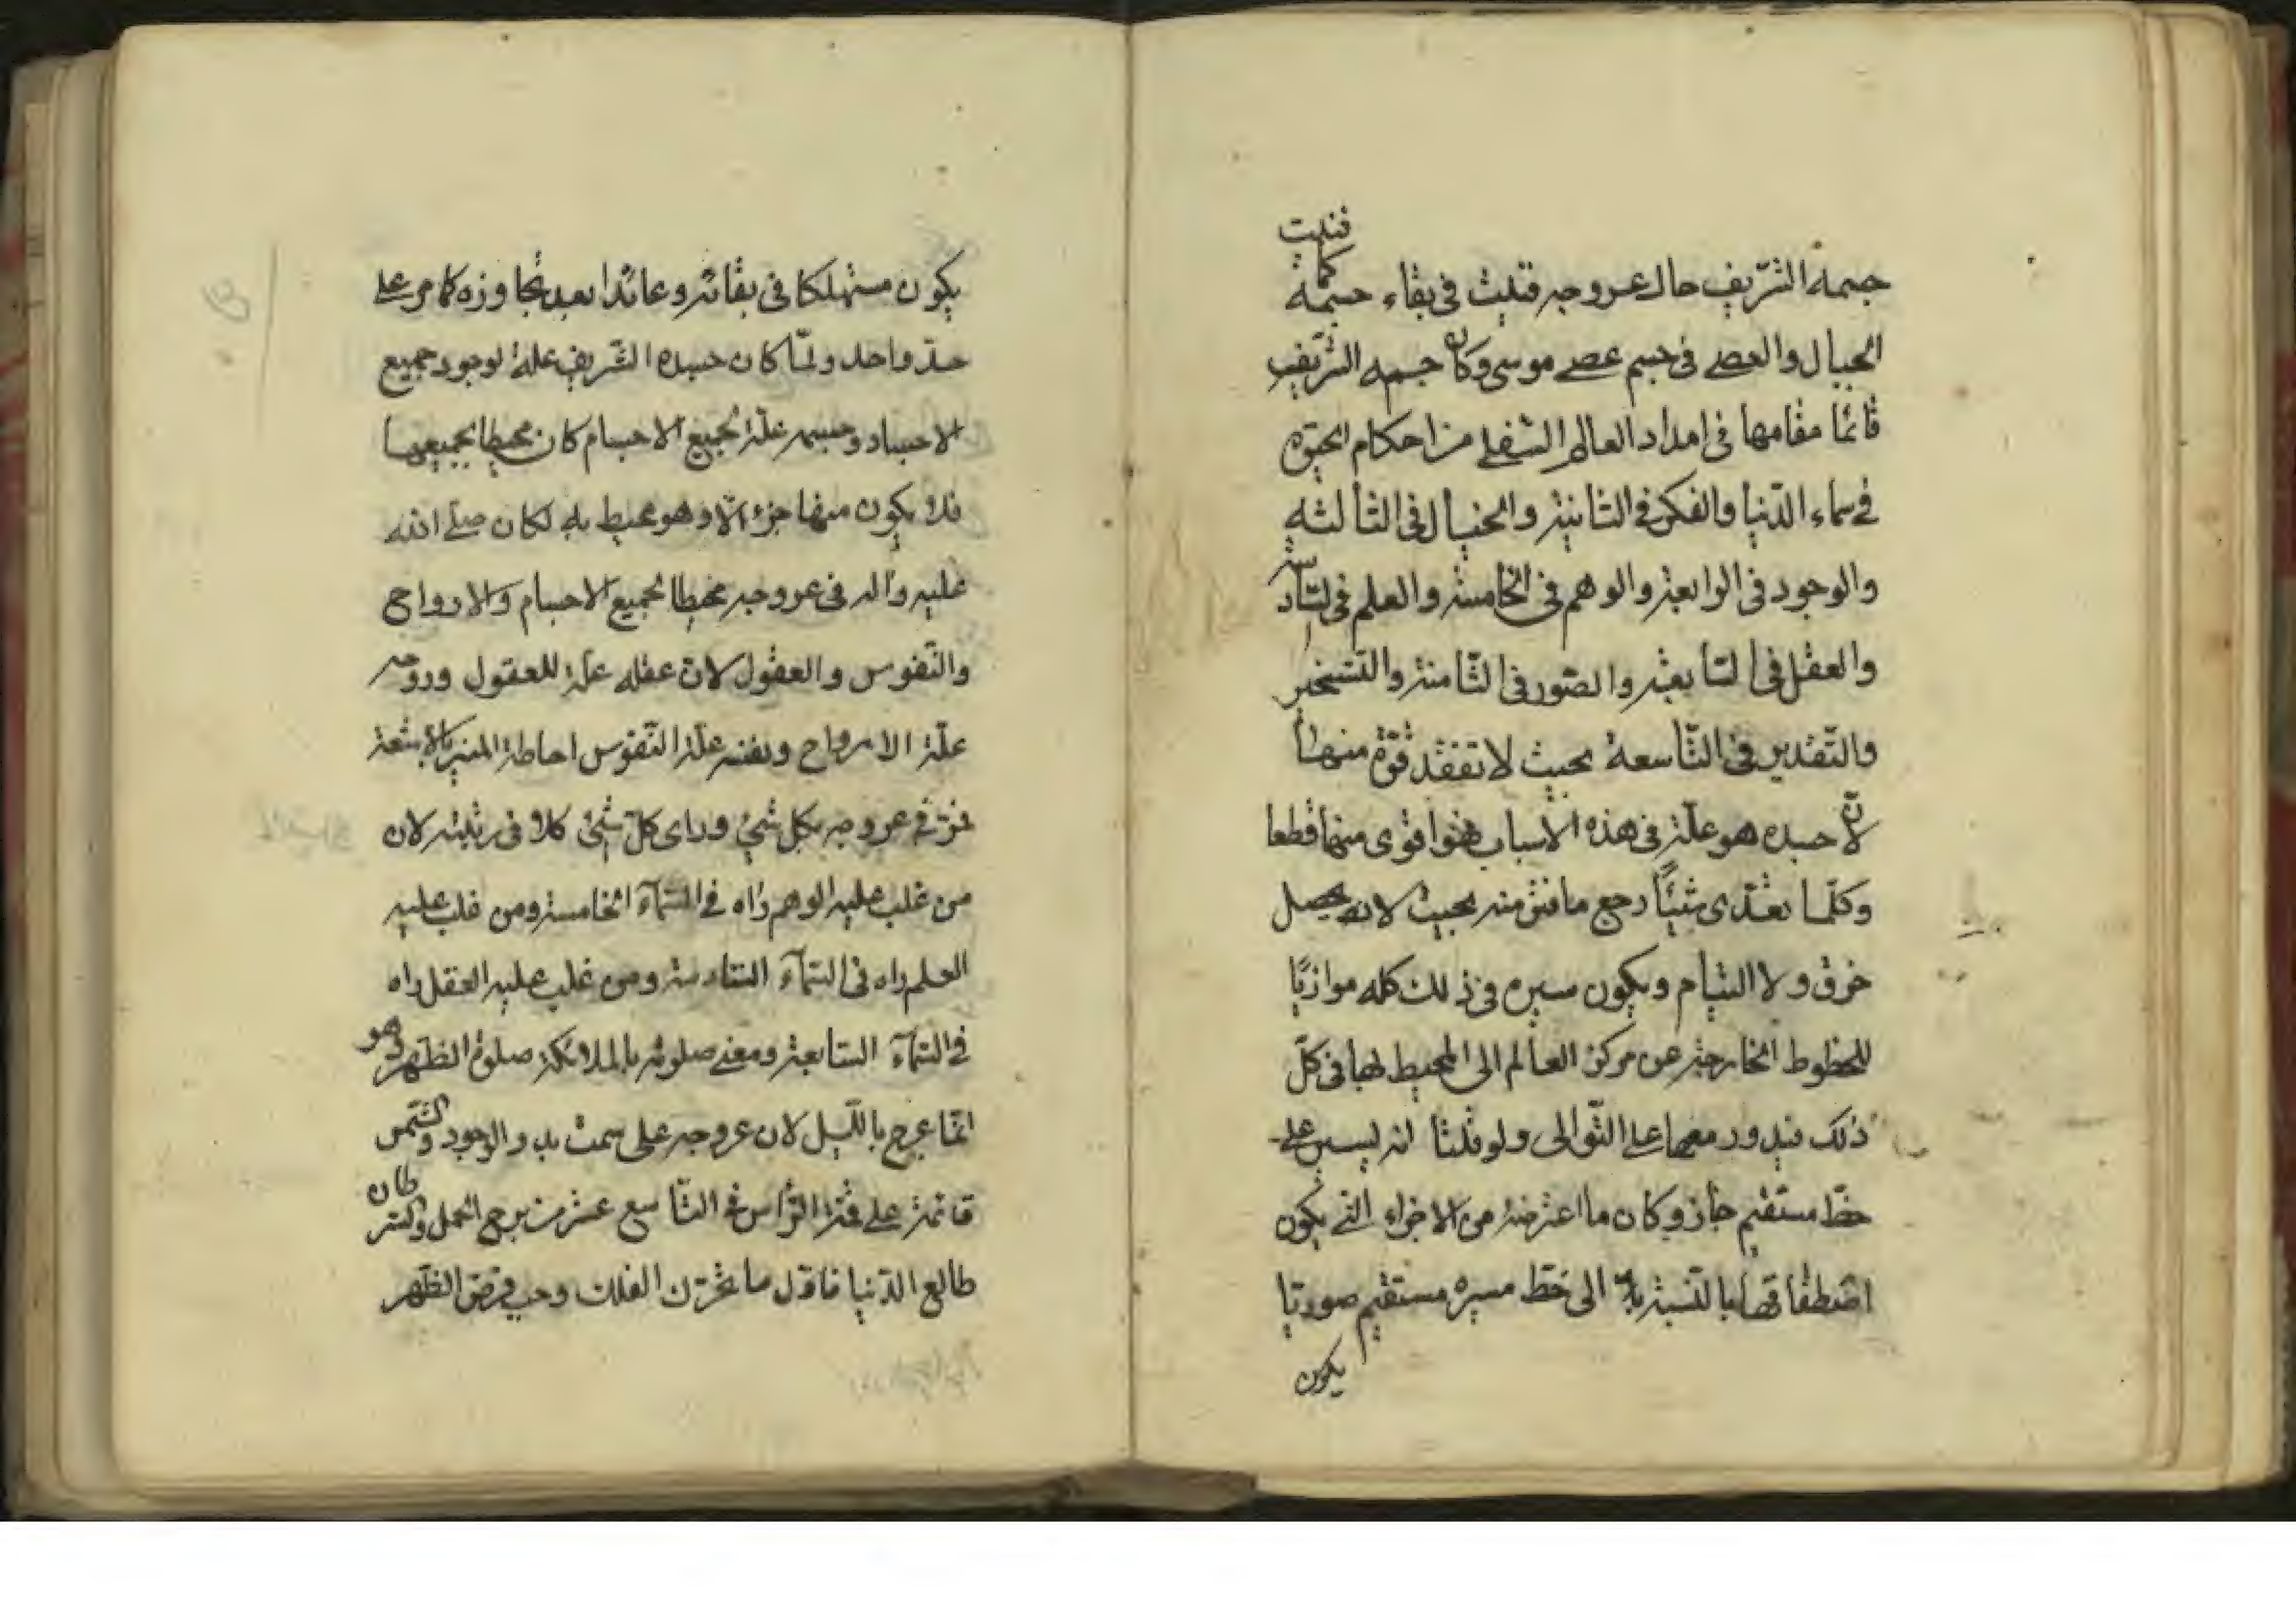 جسمه الشريف حال عروجه فنيت في بقاء جسمه كما فنيت
الحبال والعصي في جسم عصى موسى وكان جسمه الشريف
قائما مقامها في امداد العالم السفلي من احكام الحيوة
في سماء الدنيا والفكر في الثانية والخيال في الثالثه
والوجود في الرابعة والوهم في الخامسة والعلم في السادسة
والعقل في السابعة والصور في الثامنة والتسخير
والتقدير في التاسعة بحيث لا تفقد قوة منها
لان جسده هو علة في هذه الاسباب فهو اقوى منها قطعا
وكلما تعدى شيئا رجع ما فني منه بحيث لا يحصل
خرق ولا التيام ويكون سيره في ذلك كله موازيا
للخطوط الخارجة عن مركز العالم الى المحيط لها في كل
ذلك فيدور معها على التوالى ولو قلنا انه يسير على
خط مستقيم جاز وكان ما اعترضه من الاجزاء التي يكون
اصطفاقها بالنسبة الى خط مسيره مستقيم صوريا
يكون
يكون مستهلكا في بقائه وعائدا بعد تجاوزه كما مر على
حد واحد ولما كان جسده الشريف علة لوجود جميع
الاجساد وجسمه علة لجميع الاجسام كان محيطا بجميعها
فلا يكون منها جزء الا وهو محيط به لكان صلى الله
عليه وآله في عروجه محيطا بجميع الاجسام والارواح
والنفوس والعقول لان عقله علة للعقول وروحه
علة الارواح ونفسه علة النفوس احاطة المنير بالاشعة
فمر في عروجه بكل شيء وراى كل شيء كلا في رتبته لان
من غلب عليه الوهم راه في السمآء الخامسة ومن غلب عليه
العلم راه في السمآء السادسة ومن غلب عليه العقل راه
في السمآء السابعة ومعنى صلوته بالملائكة صلوة الظهر وهو
انما عرج بالليل لان عروجه على سمت بدو الوجود والشمس
قائمة على قمة الراس في التاسع عشر من برج الحمل والسرطان
طالع الدنيا فاول ما تحرك الفلك وجب فرض الظهر